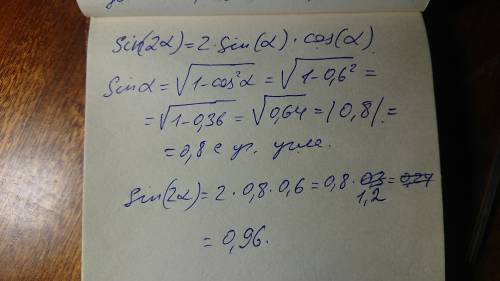 Sin(2α)=2·Sin(α)·cos(α)
Sinα=√(1-cos²α)=√(1-0,6²)=
=√(1-0,36)=√0,64=|0,8|=
=0,8
Sin(2α)=2·0,8·0,6=0,8·1,2
=0,96.